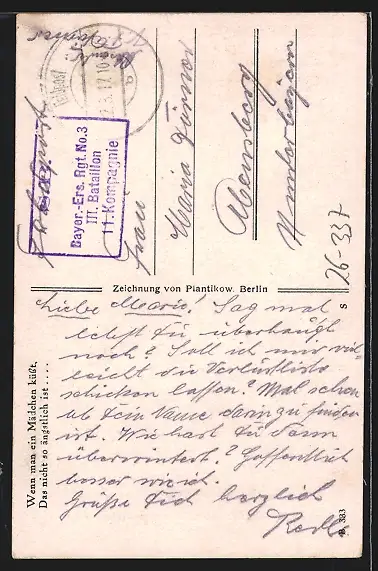 Feldpost
Bayer.-Ers. Rgt. No. 3
III. Bataillon
11. Kompagnie
Frau
Maria
Abensberg
Niederbayern
26-337
Zeichnung von Plantikow. Berlin
S
Liebe Marie! Sag mal
lebst Du überhaupt
noch? Soll ich mir viel-
leicht die Verlustliste
schicken lassen? Mal sehen
ob Dein Name darin zu finden
ist. Wie hast Du denn
überwintert? Hoffentlich
besser wie ich.
Grüße Dich herzlich
Wenn man ein Mädchen küßt,
Das nicht so ängstlich ist ....
R. 383